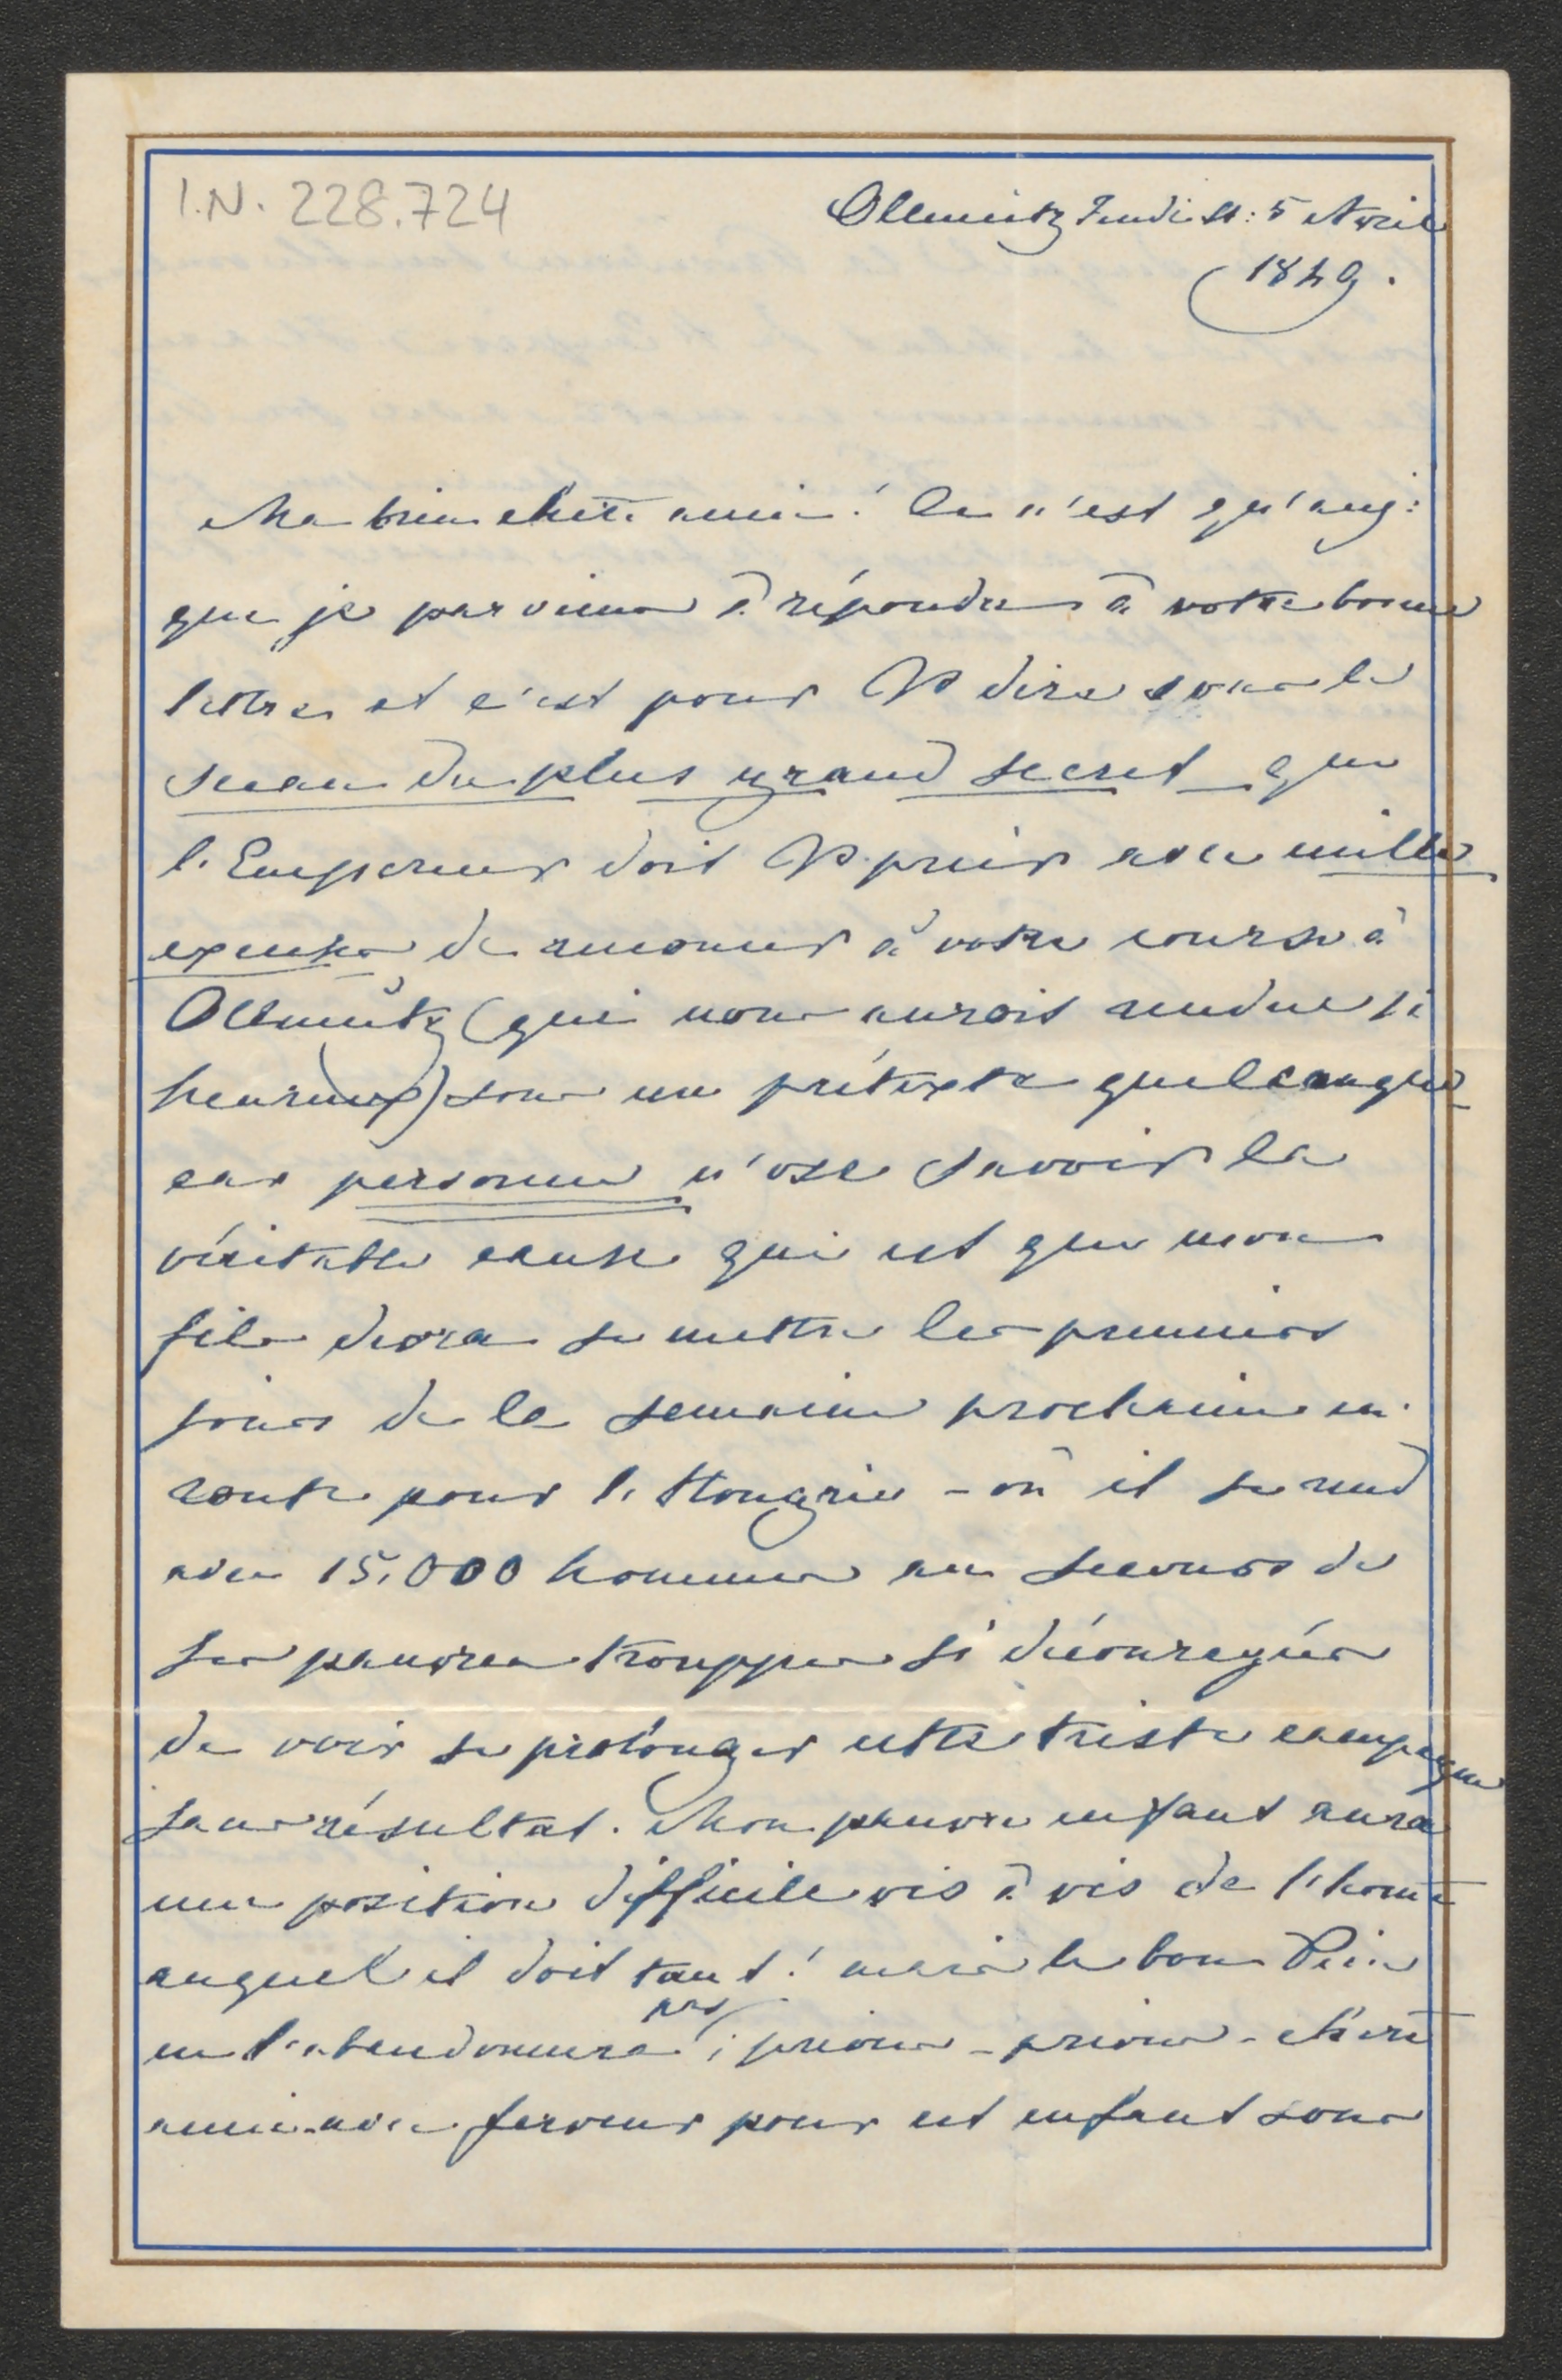 I.N. 228.724
Ollmütz Jeudi st: 5 Avril
1849.
Ma bien chère amie! Ce n'est qu'auj:
que je parviens à répondre à votre bonne
lettre et c'est pour V dire sous le
sceau du plus grand secret que
l'Empereur doit V prier avec mille
excuses de renoncer à votre course à
Ollmütz (qui nous auroit rendue si
heureux) sous un prétexte quelconque
car personne n'ose savoir la
véritable cause qui est que mon
fils devra se mettre les premiers
jours de la semaine prochaine en
route pour l'Hongrie - où il se rend
avec 15,000 hommes au secours de
ses pauvres trouppes si découragées
de voir se prolonger cette triste campagne
sans résultat. Mon pauvre enfant aura
une position difficile vis à vis de l'home
auquel il doit tant! mais le bon Dieu
ne l'abandonnera pas; prions - prions - chère
amie avec ferveur pour cet enfant sous